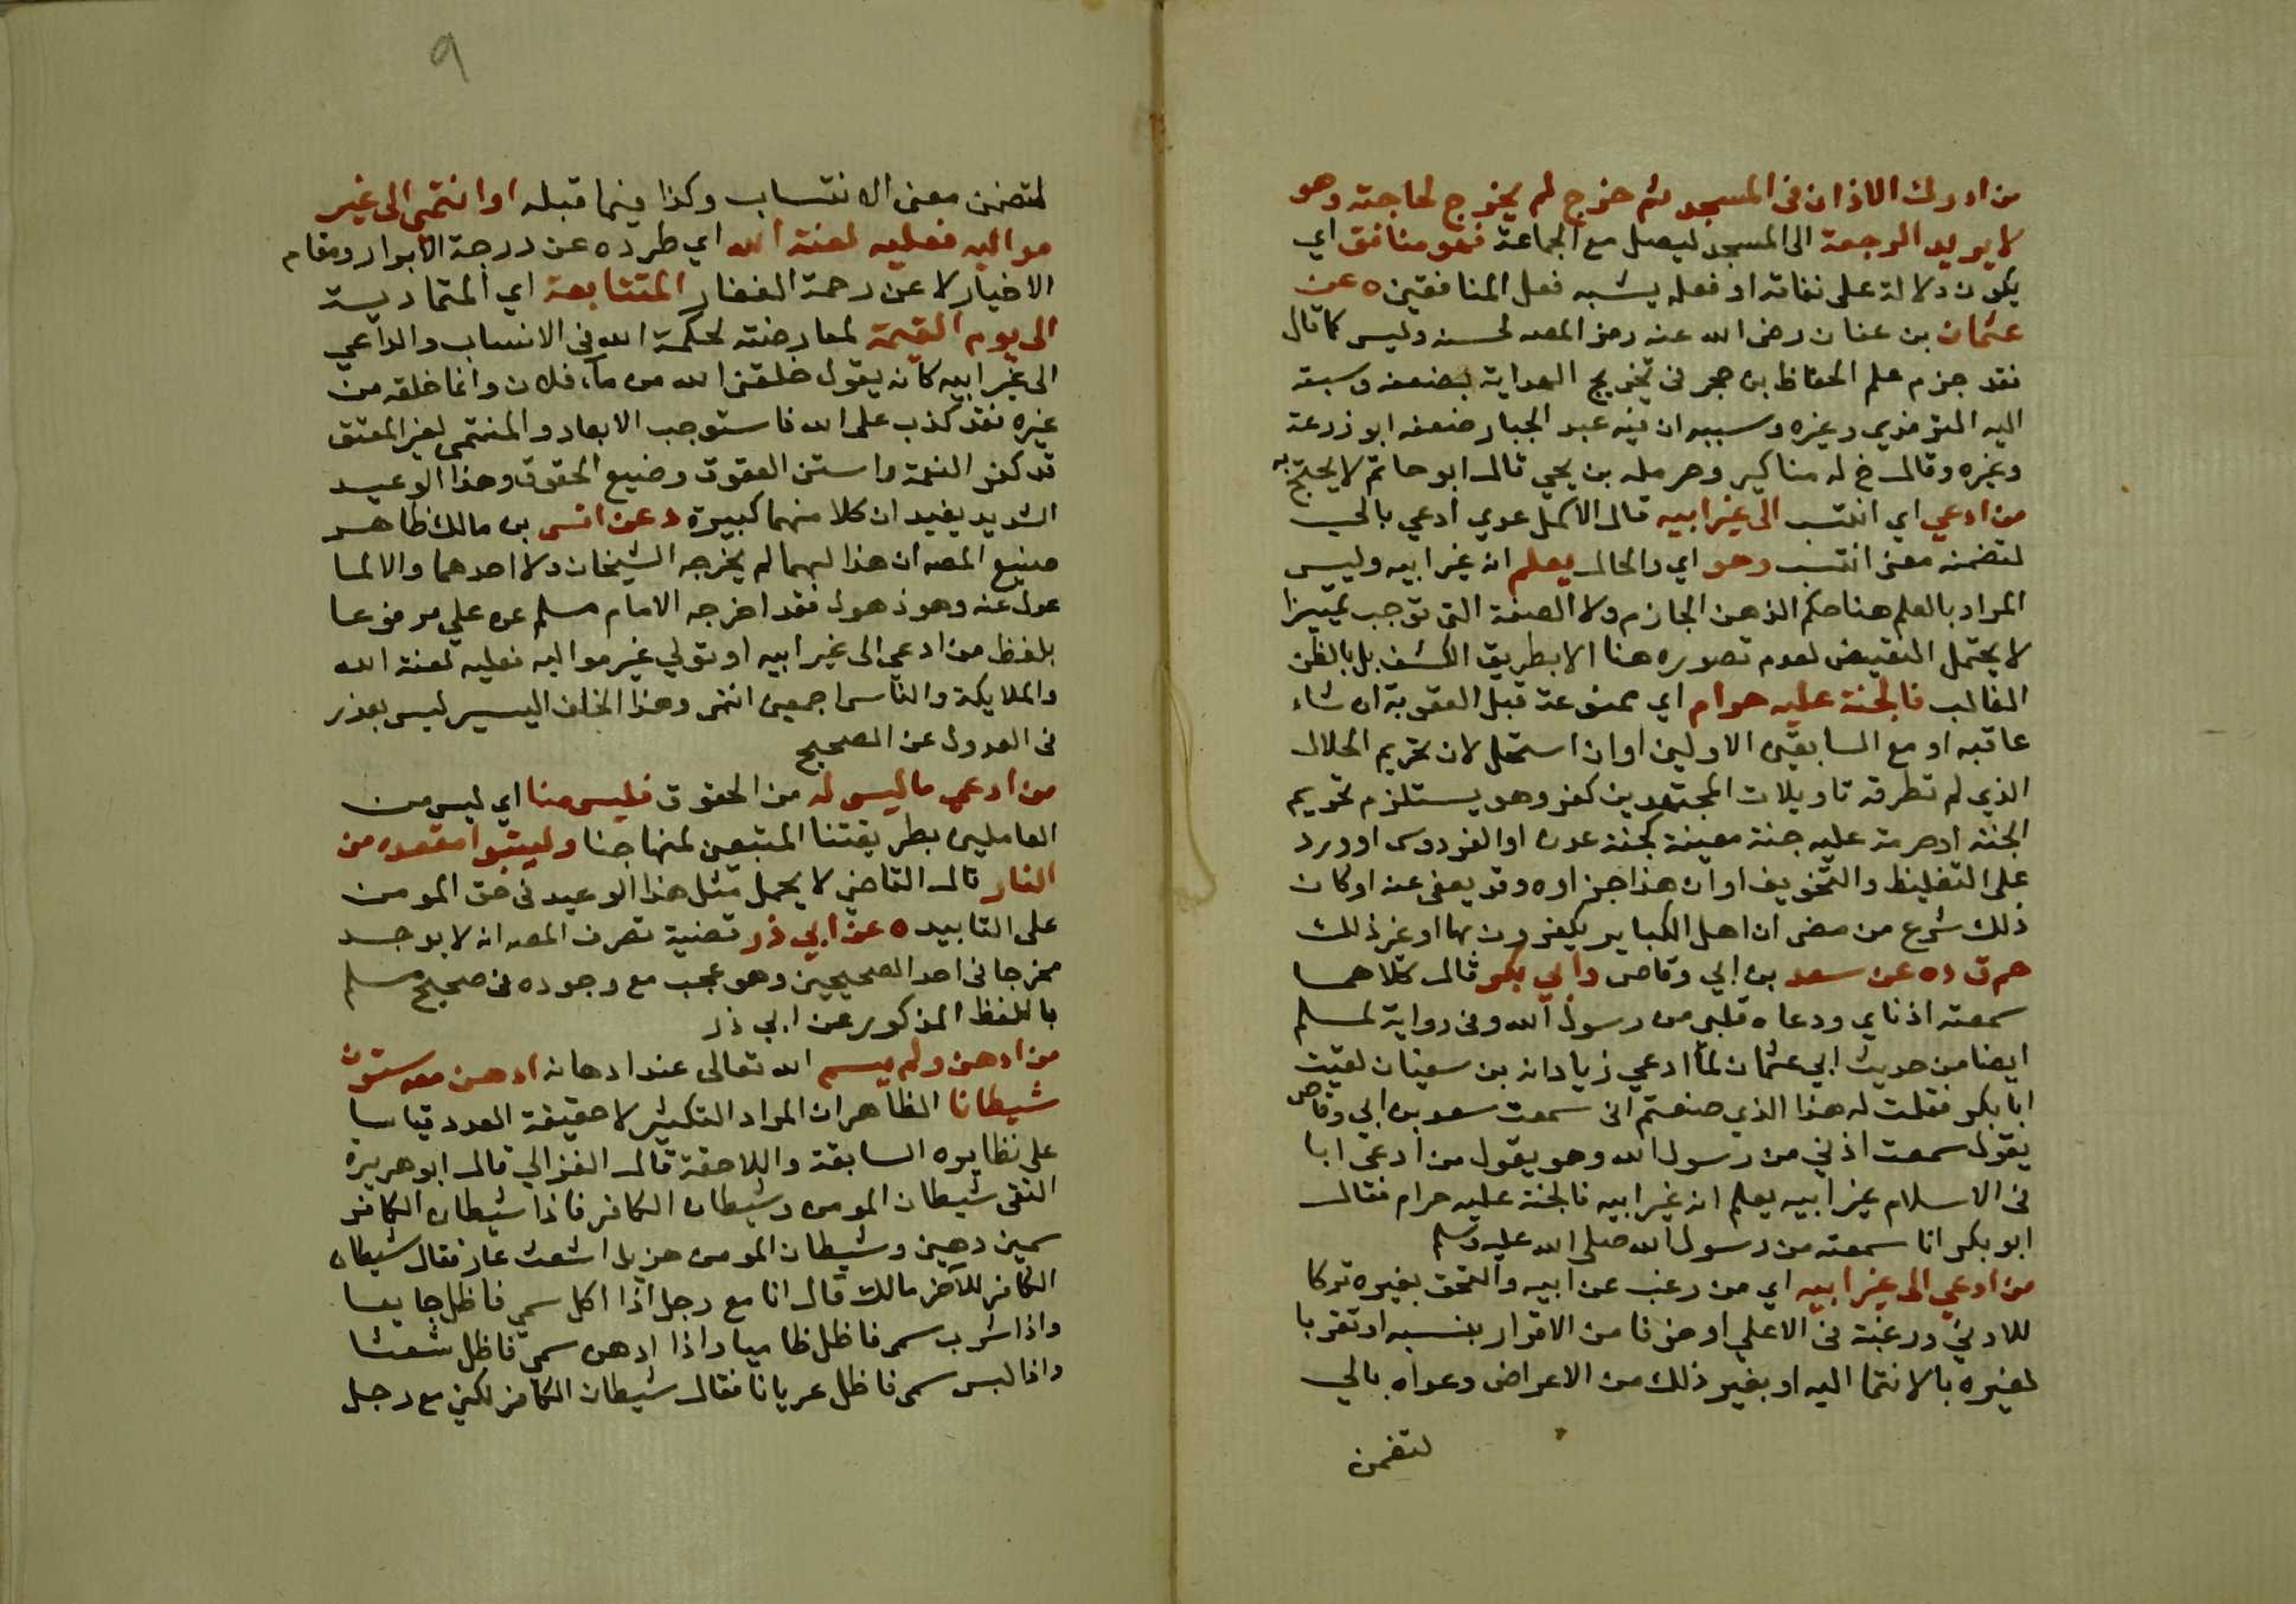 من ادرك الاذان في المسجد ثم خرج لم يخرج لحاجته وهو
لا يريد الرجعة الى المسجد ليصل مع الجماعة فهو منافق اي
يكون دلالة على نفاقه او فعله يشبه فعل المنافقين ه عن
عثمان بن عفان رضي الله عنه رمز المصه لحسنه وليس كما قال
فقد جزم علم الحفاظ بن حجر في تخريج الهداية بضعفه وسبقه
اليه الترمذي وغيره وسببه ان فيه عبد الجبار ضعفه ابو زرعة
وغيره وقال خ له مناكير وحرمله بن يحي قال ابو حاتم لا يحتج به
من ادعي اي انتسب الى غير ابيه قال الاكمل عدي ادعي بالي
لتضمنه معنى انتسب وهو اي والحال يعلم انه غير ابيه وليس
المراد بالعلم هنا حكم الذهن الجازم ولا الصفة التي توجب تمييزا
لا يحتمل النقيض لعدم تصوره هنا الا بطريق الكشف بل بالظن
الغالب فالجنة عليه حرام اي ممنوعة قبل العقوبة ان شاء
عاقبه او مع السابقين الاولين اوان استحل لان تحريم الحلال
الذي لم تطرقه تاويلات المجتهدين كفر وهو يستلزم تحريم
الجنة او حرمة عليه جنة معينة كجنة عدن او الفردوس او ورد
على التغليظ والتخويف او ان هذا جزاوه وقد يعفى عنه او كان
ذلك شرع من مضى ان اهل الكباير يكفرون بها او غير ذلك
حم ق د ه عن سعد بن ابي وقاص وابي بكر قال كلاهما
سمعته اذناي ووعاه قلبي من رسول الله وفي رواية لمسلم
ايضا من حديث ابي عثمان لما ادعي زياد انه بن سفيان لقيت
ابا بكر فقلت له هذا الذي صنعتم اني سمعت سعد بن ابي وقاص
يقول سمعت اذني من رسول الله وهو يقول من ادعى ابا
في الاسلام غير ابيه يعلم انه غير ابيه فالجنة عليه حرام فقال
ابو بكر انا سمعته من رسول الله صلى الله عليه وسلم
من ادعي الى غير ابيه اي من رغب عن ابيه والتحق بغيره تركا
للادني ورغبة في الاعلي او خوفا من الاقرار بنسبه او تقربا
لغيره بالانتما اليه او بغير ذلك من الاعراض وعداه بالي
لتضمن
٩
لتضمن معنى الانتساب وكذا فيما قبله او انتمى الى غير
مواليه فعليه لعنة الله اي طرده عن درجة الابرار ومقام
الاخيار لا عن رحمة الغفار المتتابعة اي المتمادية
الى يوم القيمة لمعارضته لحكمة الله في الانساب والداعي
الى غير ابيه كانه يقول خلقني الله من ماء فلان وانما خلقه من
غيره فقد كذب على الله فاستوجب الابعاد والمنتمي لغير المعتق
قد كفر النعمة واستن العقوق وضيع الحقوق وهذا الوعيد
الشديد يفيد ان كلا منهما كبيرة د عن انس بن مالك ظاهر
صنيع المصه ان هذا لهما لم يخرجه الشيخان ولا احدهما والا لما
عدل عنه وهو ذهول فقد اخرجه الامام مسلم عن علي مرفوعا
بلفظ من ادعي الى غير ابيه او تولي غير مواليه فعليه لعنة الله
والملايكة والناس اجمعين انتهى وهذا الخلف اليسير ليس بعذر
في العدول عن الصحيح
من ادعي ما ليس له من الحقوق فليس منا اي ليس من
العاملين بطريقتنا المتبعين لمنهاجنا وليتبوا مقعده من
النار قال القاضي لا يحمل مثل هذا الوعيد في حق المومن
على التابيد ه عن ابي ذر تضية تصرف المصه انه لا يوجد
مخرجا في احد الصحيحين وهو عجب مع وجوده في صحيح مسلم
باللفظ المذكور عن ابي ذر
من ادهن ولم يسم الله تعالى عند ادهانه ادهن معه ستون
شيطانا الظاهر ان المراد التكثير لا حقيقة العدد قياسا
على نظايره السابقة واللاحقة قال الغزالي قال ابو هريرة
التقى شيطان المومن وشيطان الكافر فاذا شيطان الكافر
سمين دهين وشيطان المومن هزيل اشعث عار فقال شيطان
الكافر للآخر مالك قال انا مع رجل اذا اكل سمي فاظل جايعا
واذا شرب سمى فاظل ظاميا واذا ادهن سمي فاظل شعثا
واذا لبس سمى فاظل عريانا فقال شيطان الكافر لكني مع رجل